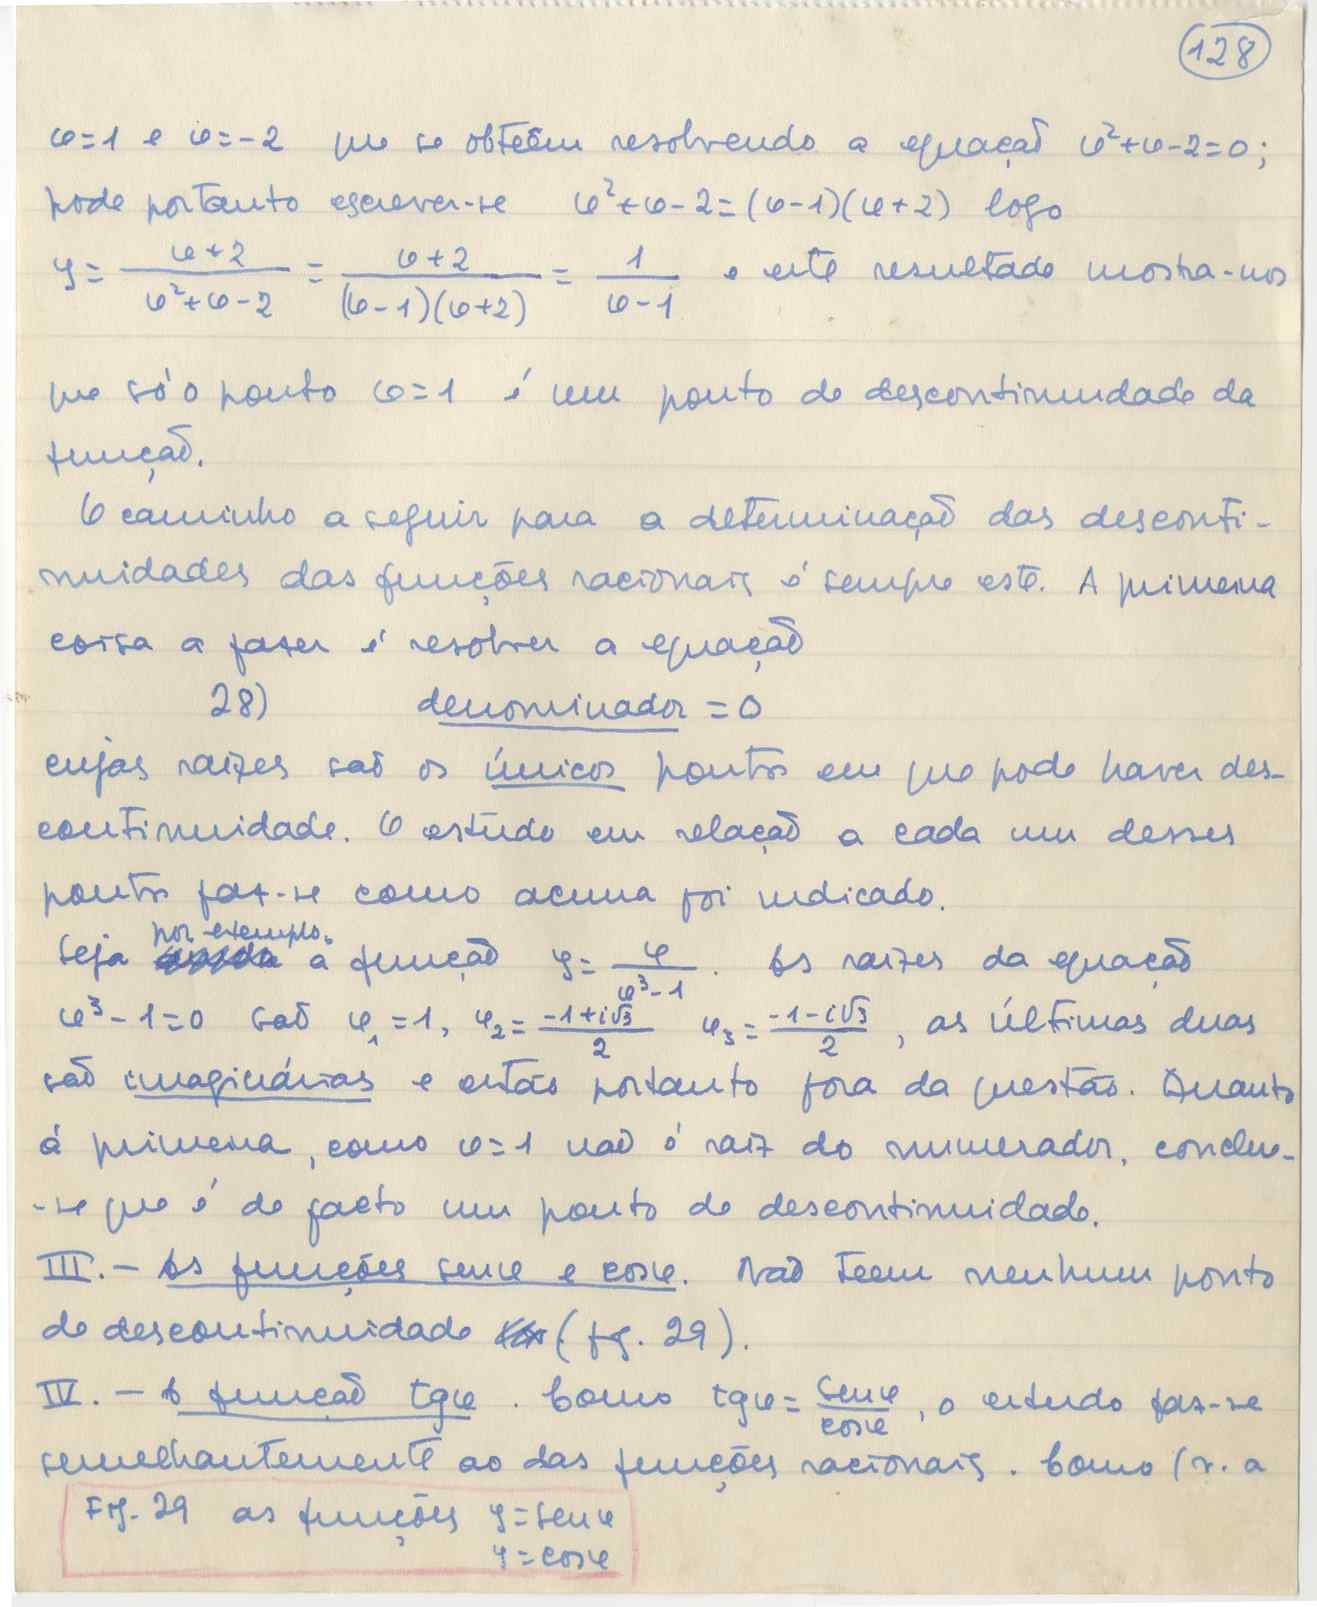 128
x=1 e x=-2 que se obtêm resolvendo a equação x²+x-2=0;
pode portanto escrever-se x²+x-2=(x-1)(x+2) logo
y= x+2 / x²+x-2 = x+2 / (x-1)(x+2) = 1 / x-1 e este resultado mostra-nos
que só o ponto x=1 é um ponto de descontinuidade da
função.
O caminho a seguir para a determinação das desconti-
nuidades das funções racionais é sempre este. A primeira
coisa a fazer é resolver a equação
28) denominador = 0
cujas raízes são os únicos pontos em que pode haver des-
continuidade. O estudo em relação a cada um desses
pontos faz-se como acima foi indicado.
Seja por exemplo a função y= x / x³-1 . As raízes da equação
x³-1=0 são x₁=1, x₂= -1+i√3 / 2 x₃= -1-i√3 / 2 , as últimas duas
são imaginárias e estão portanto fora da questão. Quanto
á primeira, como x=1 não é raiz do numerador, conclue-
-se que é de facto um ponto de descontinuidade.
III.- As funções senx e cosx. Não teem nenhum ponto
de descontinuidade (fig. 29).
IV. - A função tgx . Como tgx= senx / cosx , o estudo faz-se
semelhantemente ao das funções racionais. Como (v. a
Fig. 29 as funções y=senx
y=cosx